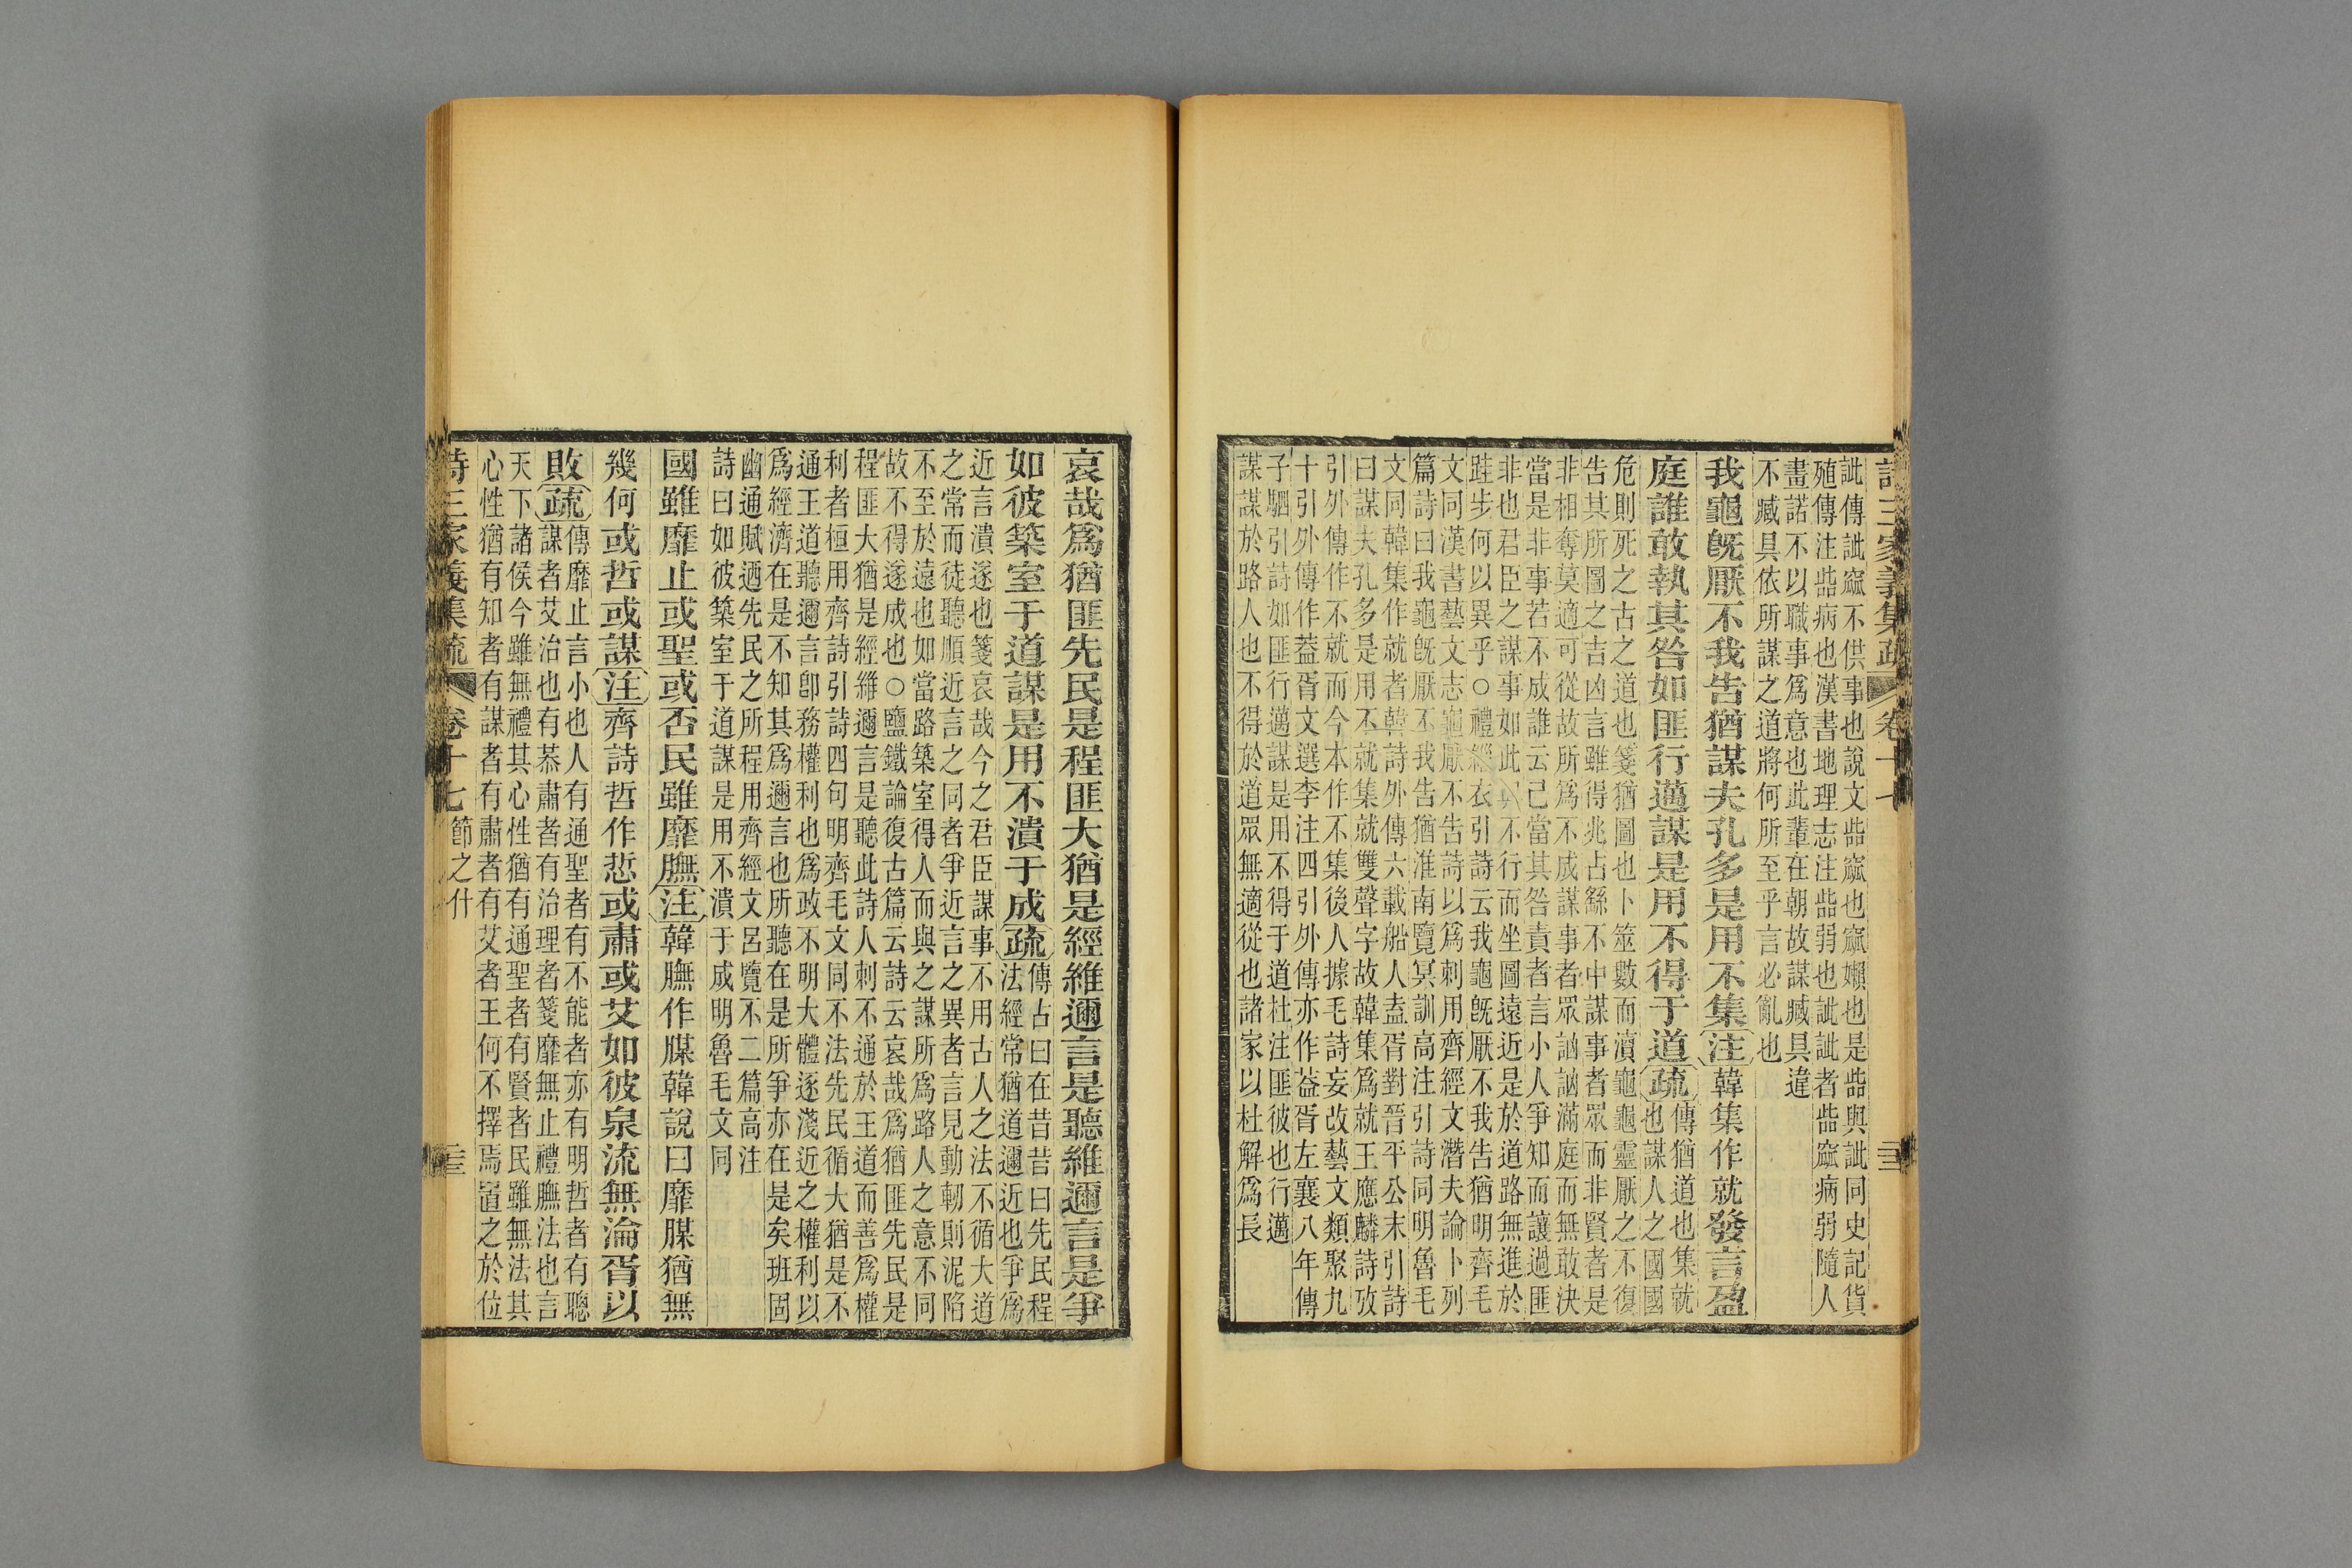 詩三家義集疏 卷十七
訿傳訿窳不供事也說文啙窳也窳嬾也是啙與訿同史記貨
殖傳注啙病也漢書地理志注啙弱也訿訿者啙窳病弱隨人
畫諾不以職事爲意也此輩在朝故謀臧具違
不臧具依所謀之道將何所至乎言必亂也
我龜旣厭不我告猶謀夫孔多是用不集注韓集作就發言盈
庭誰敢執其咎如匪行邁謀是用不得于道疏傳猶道也集就
也謀人之國國
危則死之古之道也箋猶圖也卜筮數而瀆龜龜靈厭之不復
告其所圖之吉凶言雖得兆占繇不中謀事者眾而非賢者是
非相奪莫適可從故所爲不成謀事者眾訩訩滿庭而無敢決
當是非事若不成誰云己當其咎責者言小人爭知而讓過匪
非也君臣之謀事如此與不行而坐圖遠近是於道路無進於
跬步何以異乎○禮緇衣引詩云我龜旣厭不我告猶明齊毛
文同漢書藝文志龜厭不告詩以爲刺用齊經文潛夫論卜列
篇詩曰我龜旣厭不我告猶淮南覽冥訓高注引詩同明魯毛
文同韓集作就者韓詩外傳六載船人盍胥對晉平公末引詩
曰謀夫孔多是用不就集就雙聲字故韓集爲就王應麟詩攷
引外傳作不就而今本作不集後人據毛詩妄改藝文類聚九
十引外傳作蓋胥文選李注四引外傳亦作蓋胥左襄八年傳
子駟引詩如匪行邁謀是用不得于道杜注匪彼也行邁
謀謀於路人也不得於道眾無適從也諸家以杜解爲長
哀哉爲猶匪先民是程匪大猶是經維邇言是聽維邇言是爭
如彼築室于道謀是用不潰于成疏傳占曰在昔昔曰先民程
法經常猶道邇近也爭爲
近言潰遂也箋哀哉今之君臣謀事不用古人之法不循大道
之常而徒聽順近言之同者爭近言之異者言見動軔則泥陷
不至於遠也如當路築室得人而與之謀所爲路人之意不同
故不得遂成也○鹽鐵論復古篇云詩云哀哉爲猶匪先民是
程匪大猶是經維邇言是聽此詩人刺不通於王道而善爲權
利者桓用齊詩引詩四句明齊毛文同不法先民循大猶是不
通王道聽邇言卽務權利也爲政不明大體逐淺近之權利以
爲經濟在是不知其爲邇言也所聽在是所爭亦在是矣班固
幽通賦迺先民之所程用齊經文呂覽不二篇高注
詩曰如彼築室于道謀是用不潰于成明魯毛文同
國雖靡止或聖或否民雖靡膴注韓膴作腜韓說曰靡腜猶無
幾何或哲或謀注齊詩哲作悊或肅或艾如彼泉流無淪胥以
敗疏傳靡止言小也人有通聖者有不能者亦有明哲者有聰
謀者艾治也有恭肅者有治理者箋靡無止禮膴法也言
天下諸侯今雖無禮其心性猶有通聖者有賢者民雖無法其
心性猶有知者有謀者有肅者有艾者王何不擇焉置之於位
詩三家義集疏 卷十七 節之什